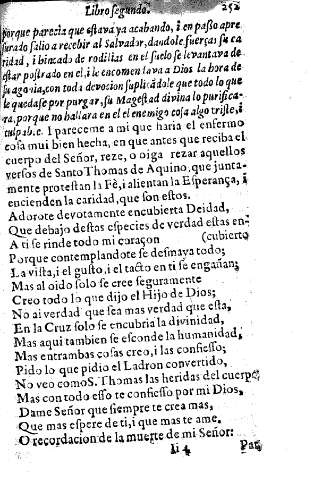 Libro segundo. 252
porque parecia que estava ya acabando, i en passo apre
surado salio a recebir al Salvador, dandole fuerças su ca
ridad, i hincado de rodillas en el suelo se levantava de
estar postrado en el, i le encomendava a Dios la hora de
su agonia, con toda devocion suplicādole que todo lo que
le quedasse por purgar, su Magestad divina lo purifica-
ra, porque no hallara en el el enemigo cosa algo triste, i
culpab.e. I pareceme a mi que haria el enfermo
cosa mui bien hecha, en que antes que reciba el
cuerpo del Señor, reze, o oiga rezar aquellos
versos de Santo Thomas de Aquino, que junta-
mente protestan la Fè, i alientan la Esperança, i
encienden la caridad, que son estos.
Adorote devotamente encubierta Deidad,
Que debajo destas especies de verdad estas en-
A ti se rinde todo mi coraçon (cubierto
Porque contemplandote se desmaya todo;
La vista, i el gusto, i el tacto en ti se engañan;
Mas al oido solo se cree seguramente
Creo todo lo que dijo el Hijo de Dios;
No ai verdad que sea mas verdad que esta,
En la Cruz solo se encubria la divinidad,
Mas aqui tambien se esconde la humanidad,
Mas entrambas cosas creo, i las confiesso;
Pido lo que pidio el Ladron convertido,
No veo como S. Thomas las heridas del cuerpo,
Mas con todo esso te confiesso por mi Dios,
Dame Señor que siempre te crea mas,
Que mas espere de ti, i que mas te ame.
O recordacion de la muerte de mi Señor:
Ii 4 Pan